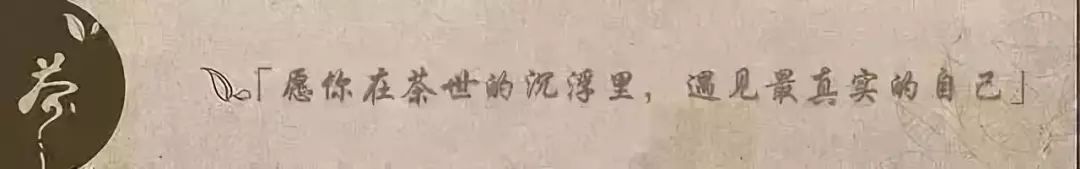 茶
「愿你在茶世的沉浮里，遇见最真实的自己」